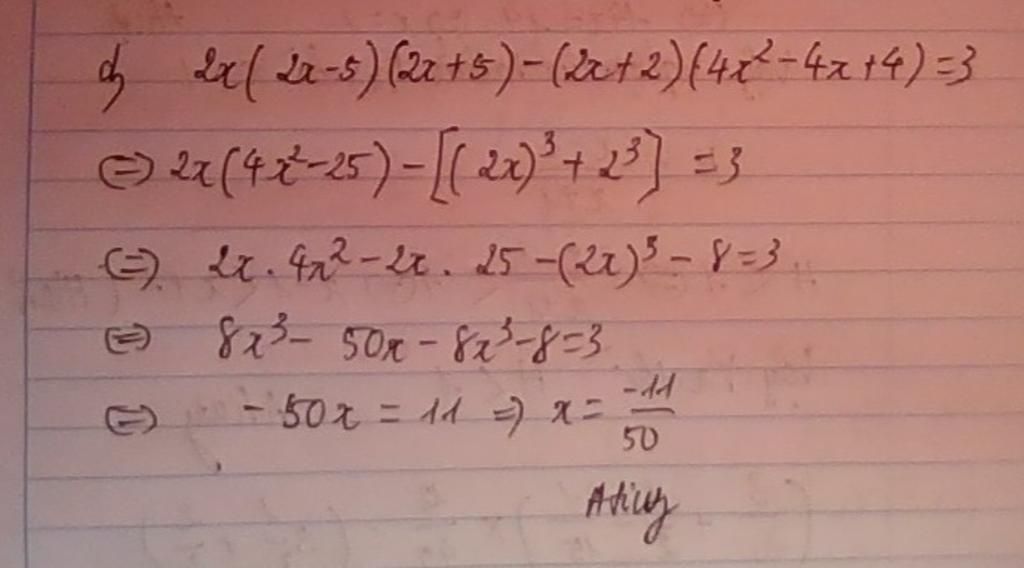 d, 2x(2x-5)(2x+5)-(2x+2)(4x²-4x+4)=3
(=) 2x(4x²-25)-[(2x)³+2³] =3
(=) 2x.4x²-2x.25-(2x)³-8=3
(=) 8x³-50x-8x³-8=3
(=) -50x=11 => x=-11/50